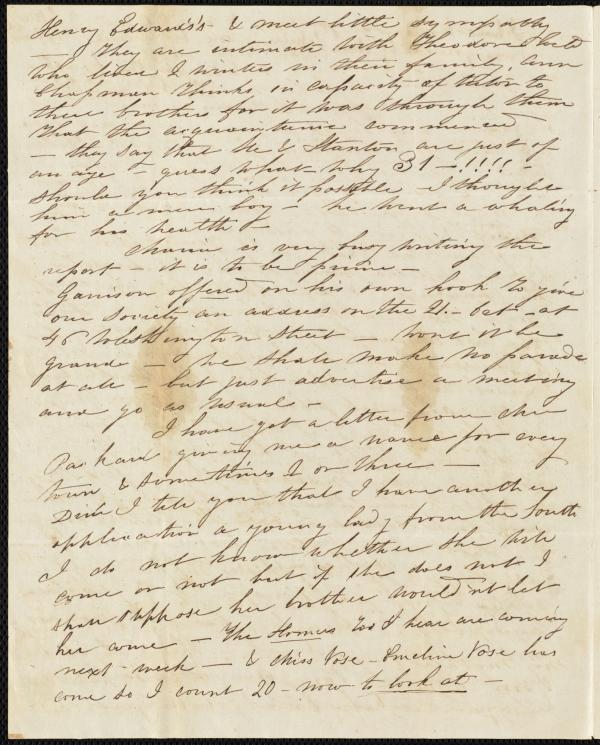 Henry Edwards's & meet little sympathy
— They are intimate with Theodore Weld
who lived & winter in their family, Ann
Chapman thinks in capacity of tutor to
these brothers for it was through them
that the acquaintance commenced
— they say that He & Stanton are just of
an age — guess what — why 31 — !!!! —
should you think it possible — I thought
him a mere boy — he went a whaling
for his health —
Maria is very busy writing the
report — it is to be prime —
Garrison offered on his own hook to give
our Society an address on the 21. Oct — at
46 Washington Street — wont it be
grand — we shall make no parade
at all — but just advertise a meeting
and go as usual —
I have got a letter from
Packard giving me a name for every
town & sometimes 2 or three —
Did I tell you that I have another
application a young lady from the South
I do not know whether she will
come or not but if she does not I
shall suppose her brother would'nt let
her come — The Homers too I hear are coming
next week — & Miss Vose — Emeline Vose has
come so I count 20 — now to look at —